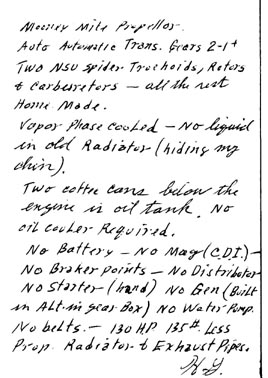 Mooney Mite Propellor.
Auto Automatic Trans. Gears 2-1+
Two NSU spider Trochoids, Rotors
& carburetors — all the rest
Home Made.
Vapor Phase cooled — No liquid
in old Radiator (hiding my
chin).
Two coffee cans below the
engine is oil tank. No
oil cooler Required.
No Battery — No Mag (C.D.I.) —
No Braker points — No Distributor
No Starter (hand) No Gen (Built
in Alt. in gear Box) No Water Pump.
No belts. — 130 HP 135#. Less
Prop. Radiator & Exhaust Pipes.